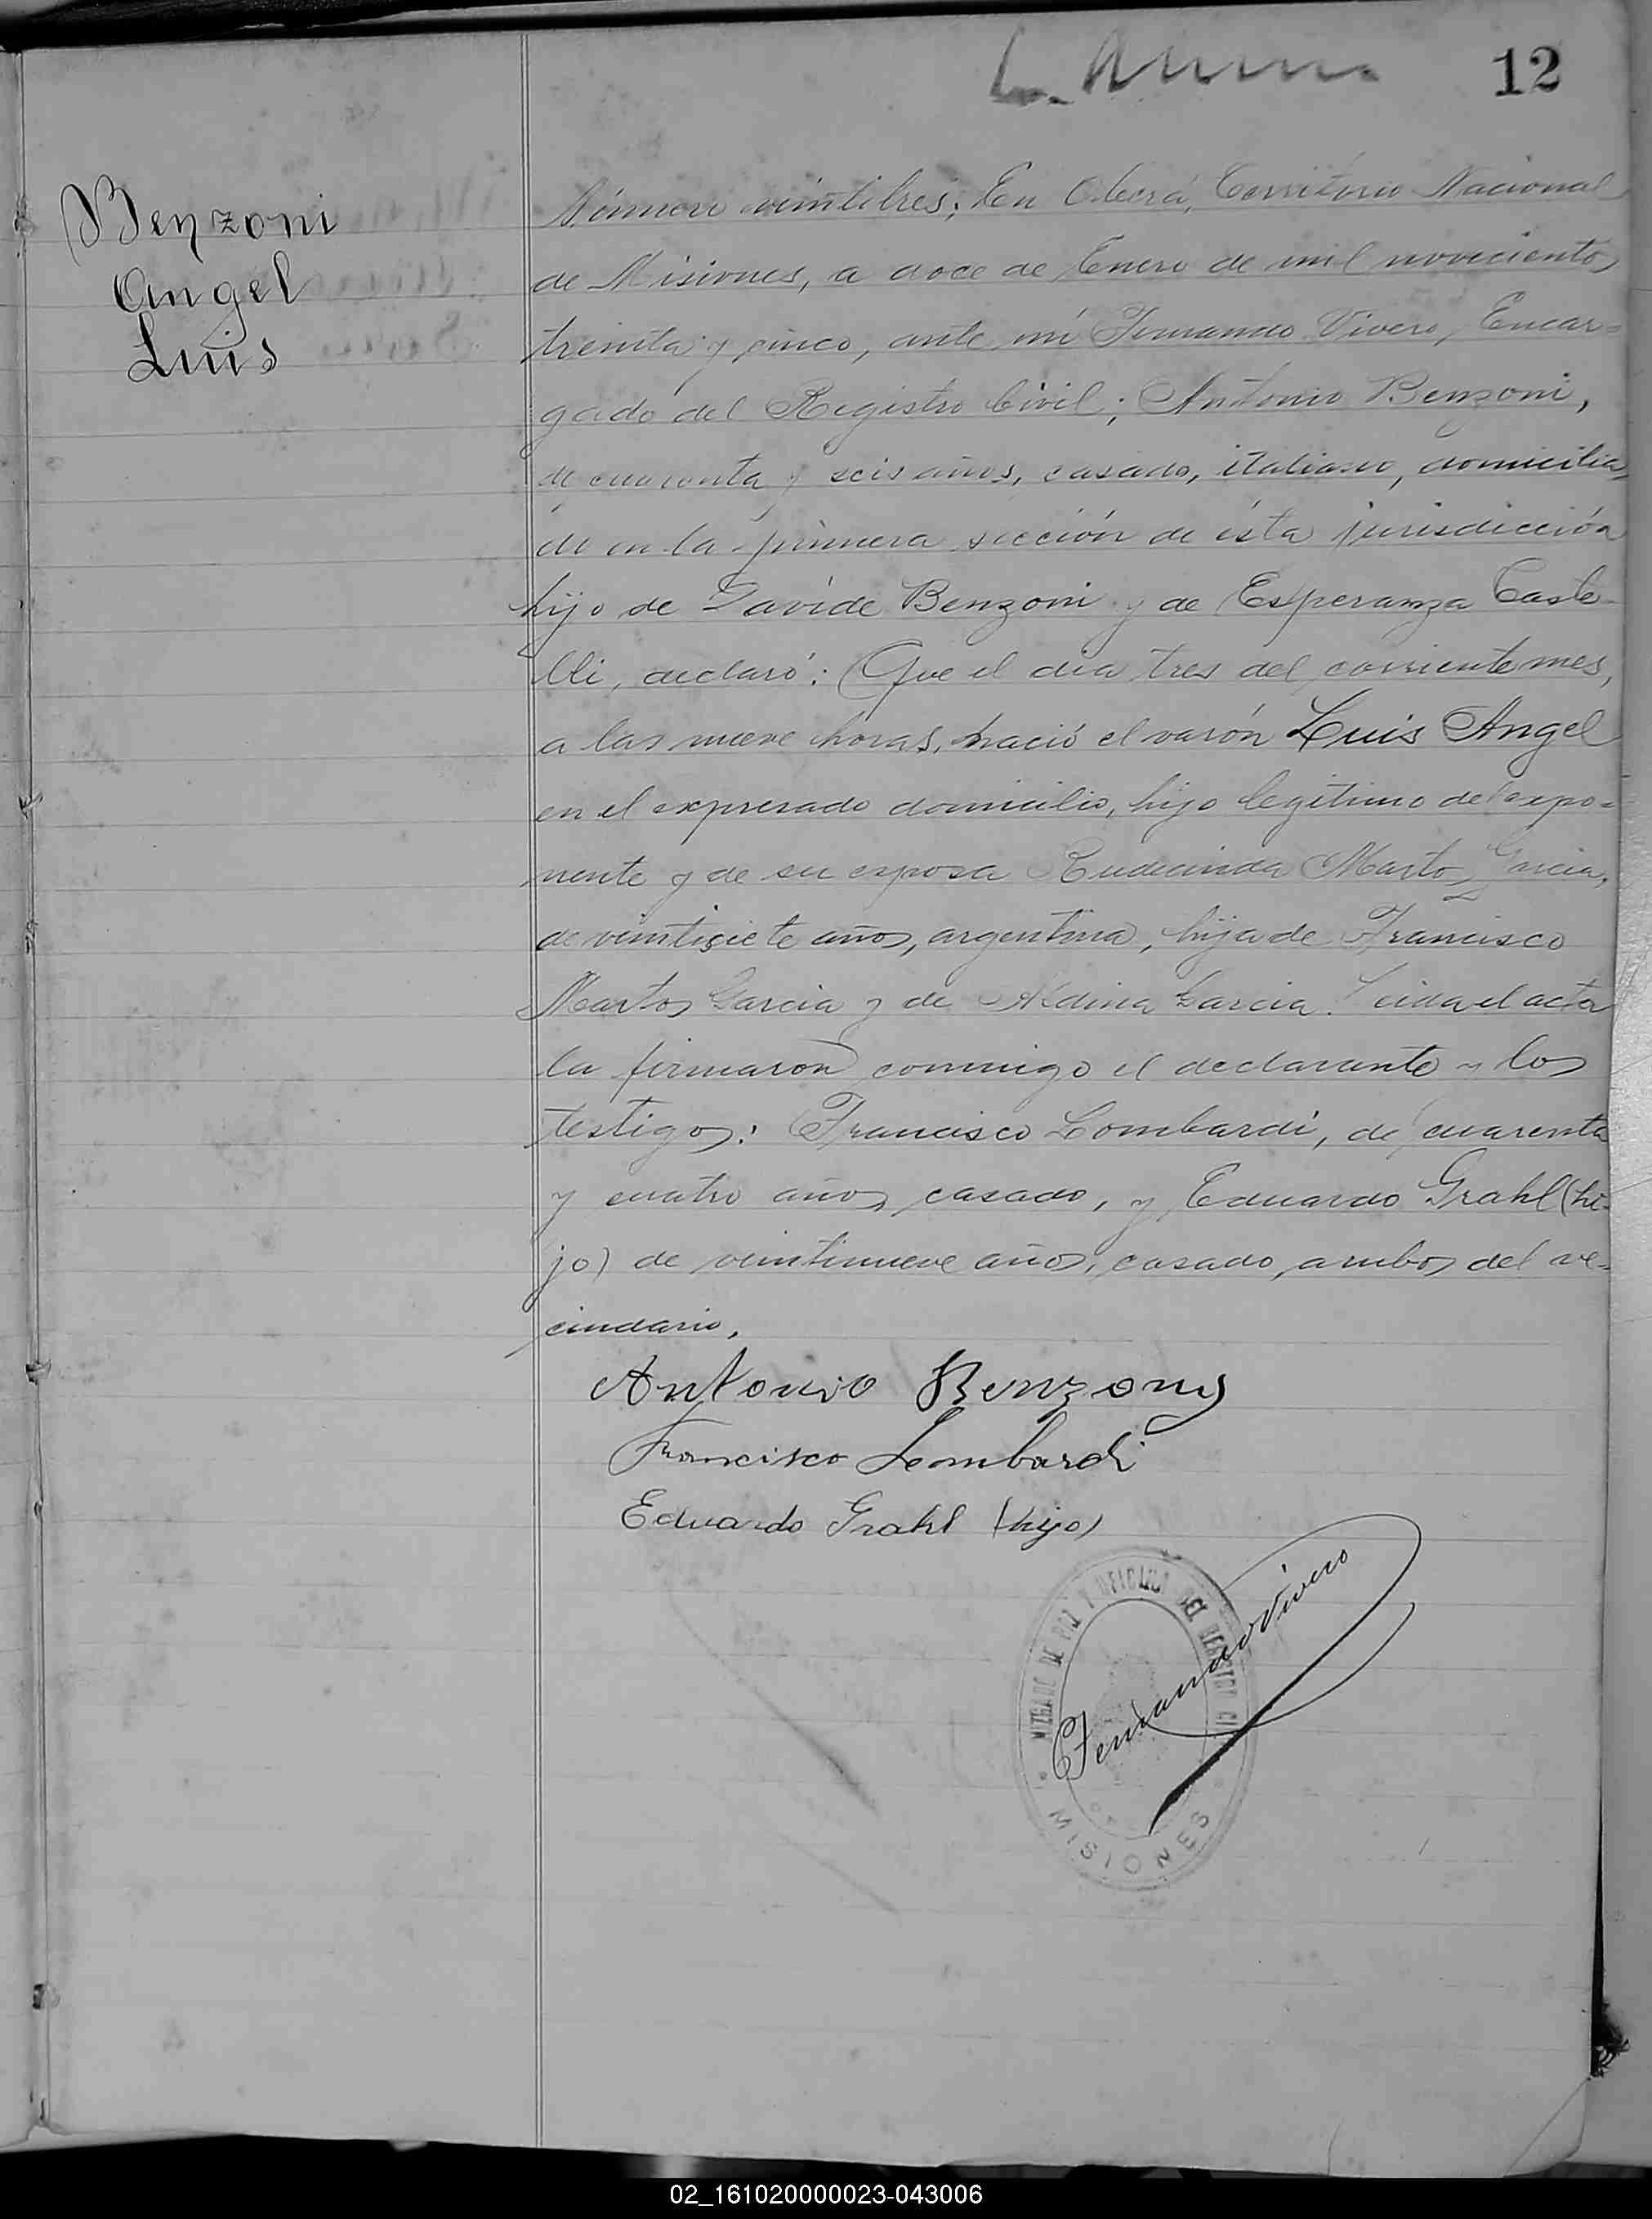 12
Benzoni
Angel
Luis
Número veintitres; En Oberá, Territorio Nacional
de Misiones, a doce de Enero de mil novecientos
treinta y cinco, ante mí Fernando Vivero, Encar=
gado del Registro Civil; Antonio Benzoni,
de cuarenta y seis años, casado, italiano, domicilia
do en la primera sección de ésta jurisdicción
hijo de Davide Benzoni y de Esperanza Caste
lli, declaró: Que el día tres del corriente mes,
a las nueve horas, nació el varón Luis Angel
en el expresado domicilio, hijo legítimo del expo=
nente y de su esposa Rudecinda Martos Garcia,
de veintisiete años, argentina, hija de Francisco
Martos Garcia y de Garcia. Leida el acta
la firmaron conmigo el declarante y los
testigos: Francisco Lombardi, de cuarenta
y cuatro años, casado, y Eduardo Grahl (hi-
jo) de veintinueve años, casado, ambos del ve=
cindario.
Antonio Benzoni
Francisco Lombardi
Eduardo Grahl (hijo)
Fernando Vivero
JUZGADO DE PAZ Y OFICINA DEL REGISTRO CI
MISIONES
02_161020000023-043006